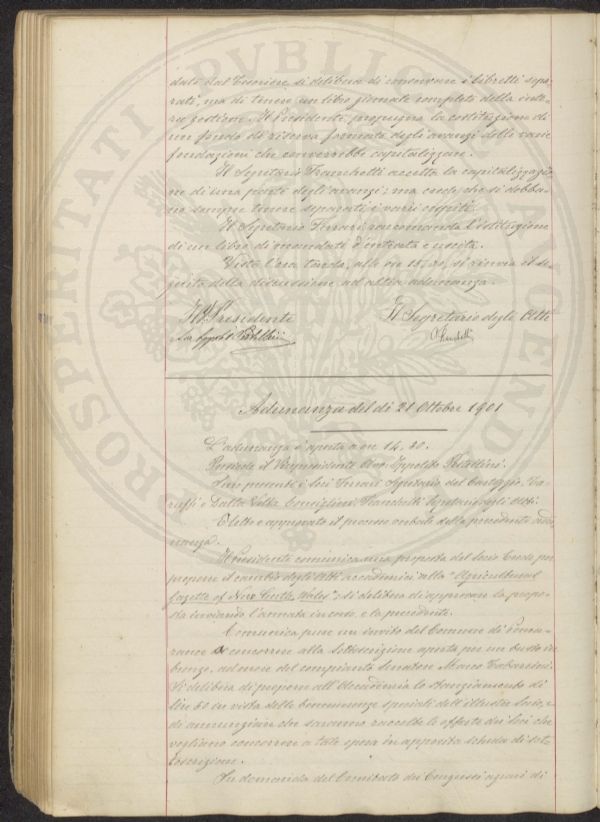 date dal Tesoriere si delibera di conservare i libretti sepa-
rati, ma di tenere un libro giornale completo della inte-
ra gestione. Il Presidente propugna la costituzione di
un fondo di riserva formato dagli avanzi delle varie
fondazioni che converrebbe capitalizzare.
Il Segretario Franchetti accetta la capitalizzazio-
ne di una parte degli avanzi; ma crede che si debba-
no sempre tenere separati i varii cespiti.
Il Segretario Ferrari raccomanda l'istituzione
di un libro di mandati d'entrata e uscita.
Vista l'ora tarda, alle ore 15,30, si rinvia il se-
guito della discussione ad altra adunanza.
Il V. Presidente
Il Segretario degli Atti
Adunanza del dì 21 Ottobre 1901
L'adunanza è aperta a ore 14,30.
Presiede il Vicepresidente Avv. Ippolito Pestellini.
Son presenti i Soci Ferrari Segretario del Carteggio, Ca-
ruffi e Dalla Volta Consiglieri, Franchetti Segretario degli Atti.
È letto e approvato il processo verbale della precedente adu-
nanza.
Il Presidente comunica una proposta del Socio per
proporre il cambio degli Atti accademici colla "Agricultural
Gazette of New South Wales": si delibera di approvare la propo-
sta inviando l'annata in corso e la precedente.
Comunica pure un invito del Comune di Poma-
rance a concorrere alla sottoscrizione aperta per un busto in
bronzo, ad onore del compianto Senatore Marco Tabarrini.
Si delibera di proporre all'Accademia lo stanziamento di
lire 50 in vista delle benemerenze speciali dell'illustre Socio, e
di annunziare che saranno raccolte le offerte dei Soci che
vogliano concorrere a tale opera in apposita scheda di sot-
toscrizione.
In domanda del Comitato dei Congressi agrari di
PROSPERITATI PVBLICAE AVGENDAE